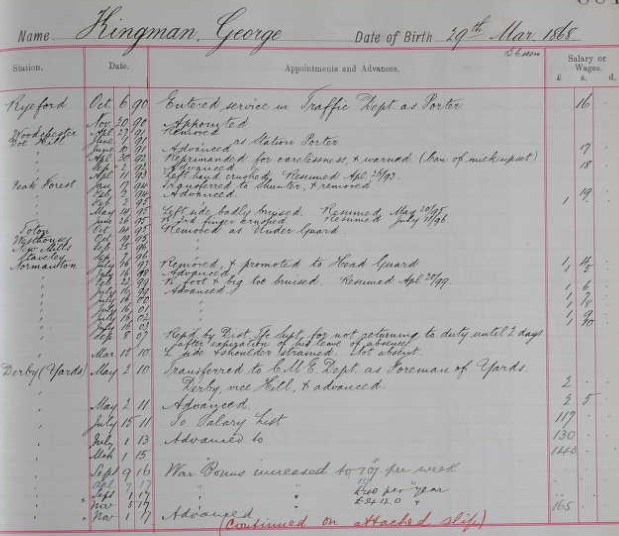 Name Kingman, George Date of Birth 29th Mar. 1868
Station. Date. Appointments and Advances. Salary or Wages.
£ s. d.
Ryeford Oct 6 90 Entered service in Traffic Dept. as Porter 16
Nov 20 90 Appointed
Woodchester Apl 27 91 Removed
June 7 91 as Station Porter
June 91 Advanced 17
Apl 20 92 Reprimanded for carelessness, & warned (Can of milk upset)
Sep 2 92 Advanced 18
Apl 11 93 Left hand crushed. Resumed Apl 26/93.
Peak Forest Jan 17 94 Transferred to Shunter, & removed
94 Advanced. 19
Sep 2 95 1
May 14 95 Left side badly bruised. Resumed May 20/95.
June 26 95 3rd finger crushed. Resumed July 11/96.
Toton Oct 14 95 Removed as Under Guard
Westhouses Oct 19 95
New Mills Sep 25 96
Staveley Sep 96
Normanton July 14 98 Removed, & promoted to Head Guard
July 16 Advanced 1 5
99 R. foot & big toe bruised. Resumed Apl 20/99.
July 16 99 Advanced. 1 6
July 16 00 1
July 16 01
July 16 02 1 9
July 16 03
Sep 8 07 Repd by Dist. Supt. for not returning to duty until 2 days
after expiration of his leave of absence
Mar 18 10 L. side & shoulder strained. Not absent.
Derby (Yards) May 2 10 Transferred to C.M.E. Dept. as Foreman of Yards.
Derby, vice Hill, & advanced 2
May 2 11 Advanced. 2 5
July 15 11 To Salary List 117
July 1 13 Advanced to 130
Mch 1 15 140
Sept 9 16 War Bonus increased to per week
Apl 17
Sept 1 17 £40 per year
Nov 5 17
Nov 1 17 Advanced 165
(Continued on attached slip)